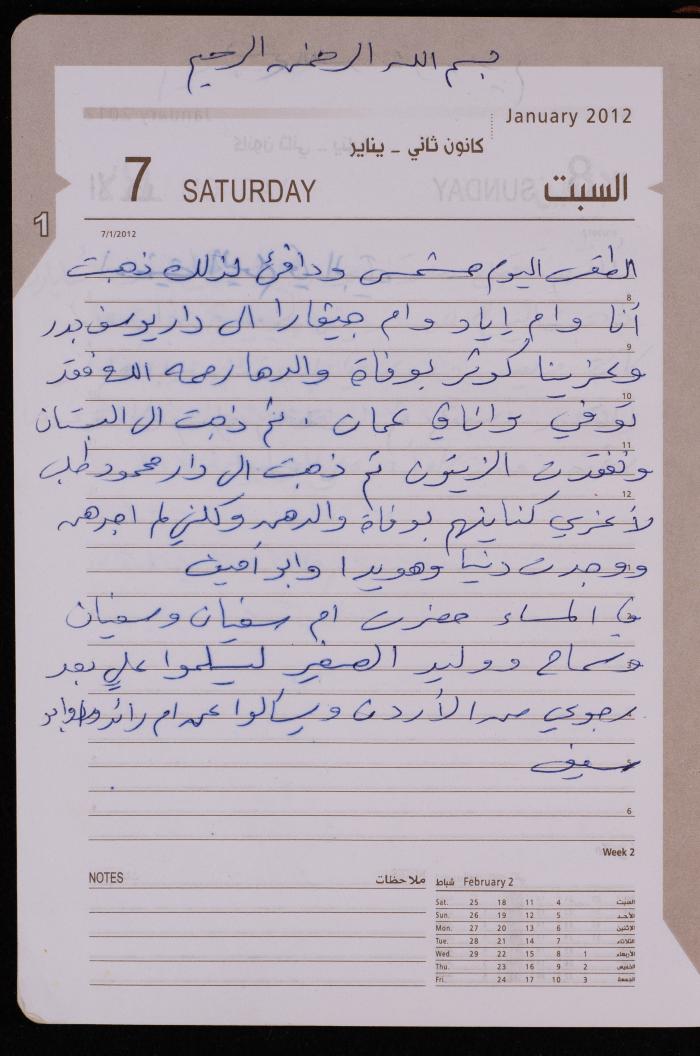 بسم الله الرحمن الرحيم
January 2012
كانون ثاني - يناير
7 SATURDAY السبت
1
7/1/2012
الطقس اليوم مشمس ودافئ لذلك ذهبت
8
أنا وام إياد وام جيفارا الى دار يوسف بدر
9
وعزينا كوثر بوفاة والدها رحمه الله فقد
10
توفي وانا في عمان . ثم ذهبت الى البستان
11
وتفقدت الزيتون ثم ذهبت الى دار محمود طلب
12
لأعزي كناينهم بوفاة والدهن ولكني لم اجدهن
ووجدت دنيا وهويدا وابو
في المساء حضرت ام سفيان وسفيان
وسماح ووليد الصغير ليسلموا علي بعد
رجوعي من الأردن ويسألوا عن ام رائد وابو
سيف
6
Week 2
NOTES ملاحظات
شباط February 2
Sat. 25 18 11 4 السبت
Sun. 26 19 12 5 الأحد
Mon. 27 20 13 6 الإثنين
Tue. 28 21 14 7 الثلاثاء
Wed. 29 22 15 8 1 الأربعاء
Thu. 23 16 9 2 الخميس
Fri. 24 17 10 3 الجمعة